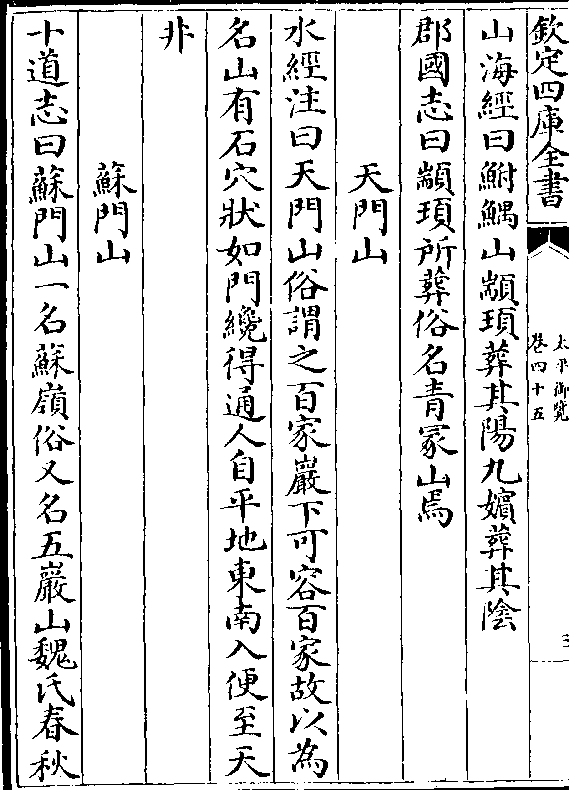 欽定四庫全書
太平御覽
卷四十五
三
山海經曰鮒鰅山顓頊葬其陽九嬪葬其陰
郡國志曰顓頊所葬俗名青冢山焉
天門山
水經注曰天門山俗謂之百家巖下可容百家故以為
名山有石穴狀如門纔得通人自平地東南入便至天
井
蘇門山
十道志曰蘇門山一名蘇嶺俗又名五巖山魏氏春秋